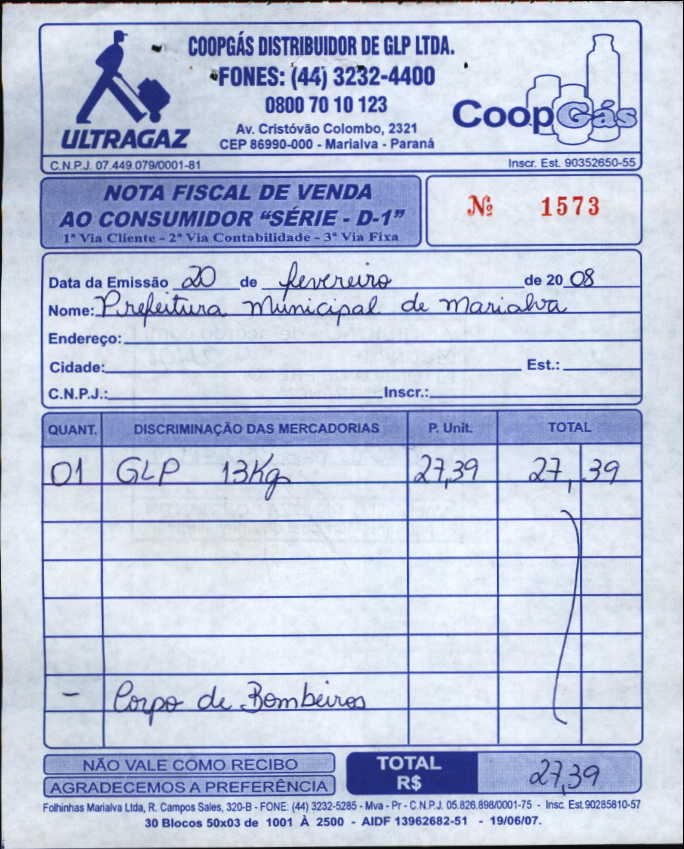 COOPGÁS DISTRIBUIDOR DE GLP LTDA.
FONES: (44) 3232-4400
0800 70 10 123
Av. Cristóvão Colombo, 2321
CEP 86990-000 - Marialva - Paraná
ULTRAGAZ
CoopGás
C.N.P.J. 07.449.079/0001-81
Inscr. Est. 90352650-55
NOTA FISCAL DE VENDA
AO CONSUMIDOR "SÉRIE - D-1"
1ª Via Cliente - 2ª Via Contabilidade - 3ª Via Fixa
Nº 1573
Data da Emissão 20 de fevereiro de 2008
Nome: Prefeitura Municipal de Marialva
Endereço:
Cidade: Est.:
C.N.P.J.: Inscr.:
QUANT. DISCRIMINAÇÃO DAS MERCADORIAS P. Unit. TOTAL
01 GLP 13Kg 27,39 27,39
- Corpo de Bombeiros
NÃO VALE COMO RECIBO
AGRADECEMOS A PREFERÊNCIA
TOTAL R$ 27,39
Folhinhas Marialva Ltda, R. Campos Sales, 320-B - FONE: (44) 3232-5285 - Mva - Pr - C.N.P.J. 05.826.898/0001-75 - Insc. Est.90285810-57
30 Blocos 50x03 de 1001 À 2500 - AIDF 13962682-51 - 19/06/07.